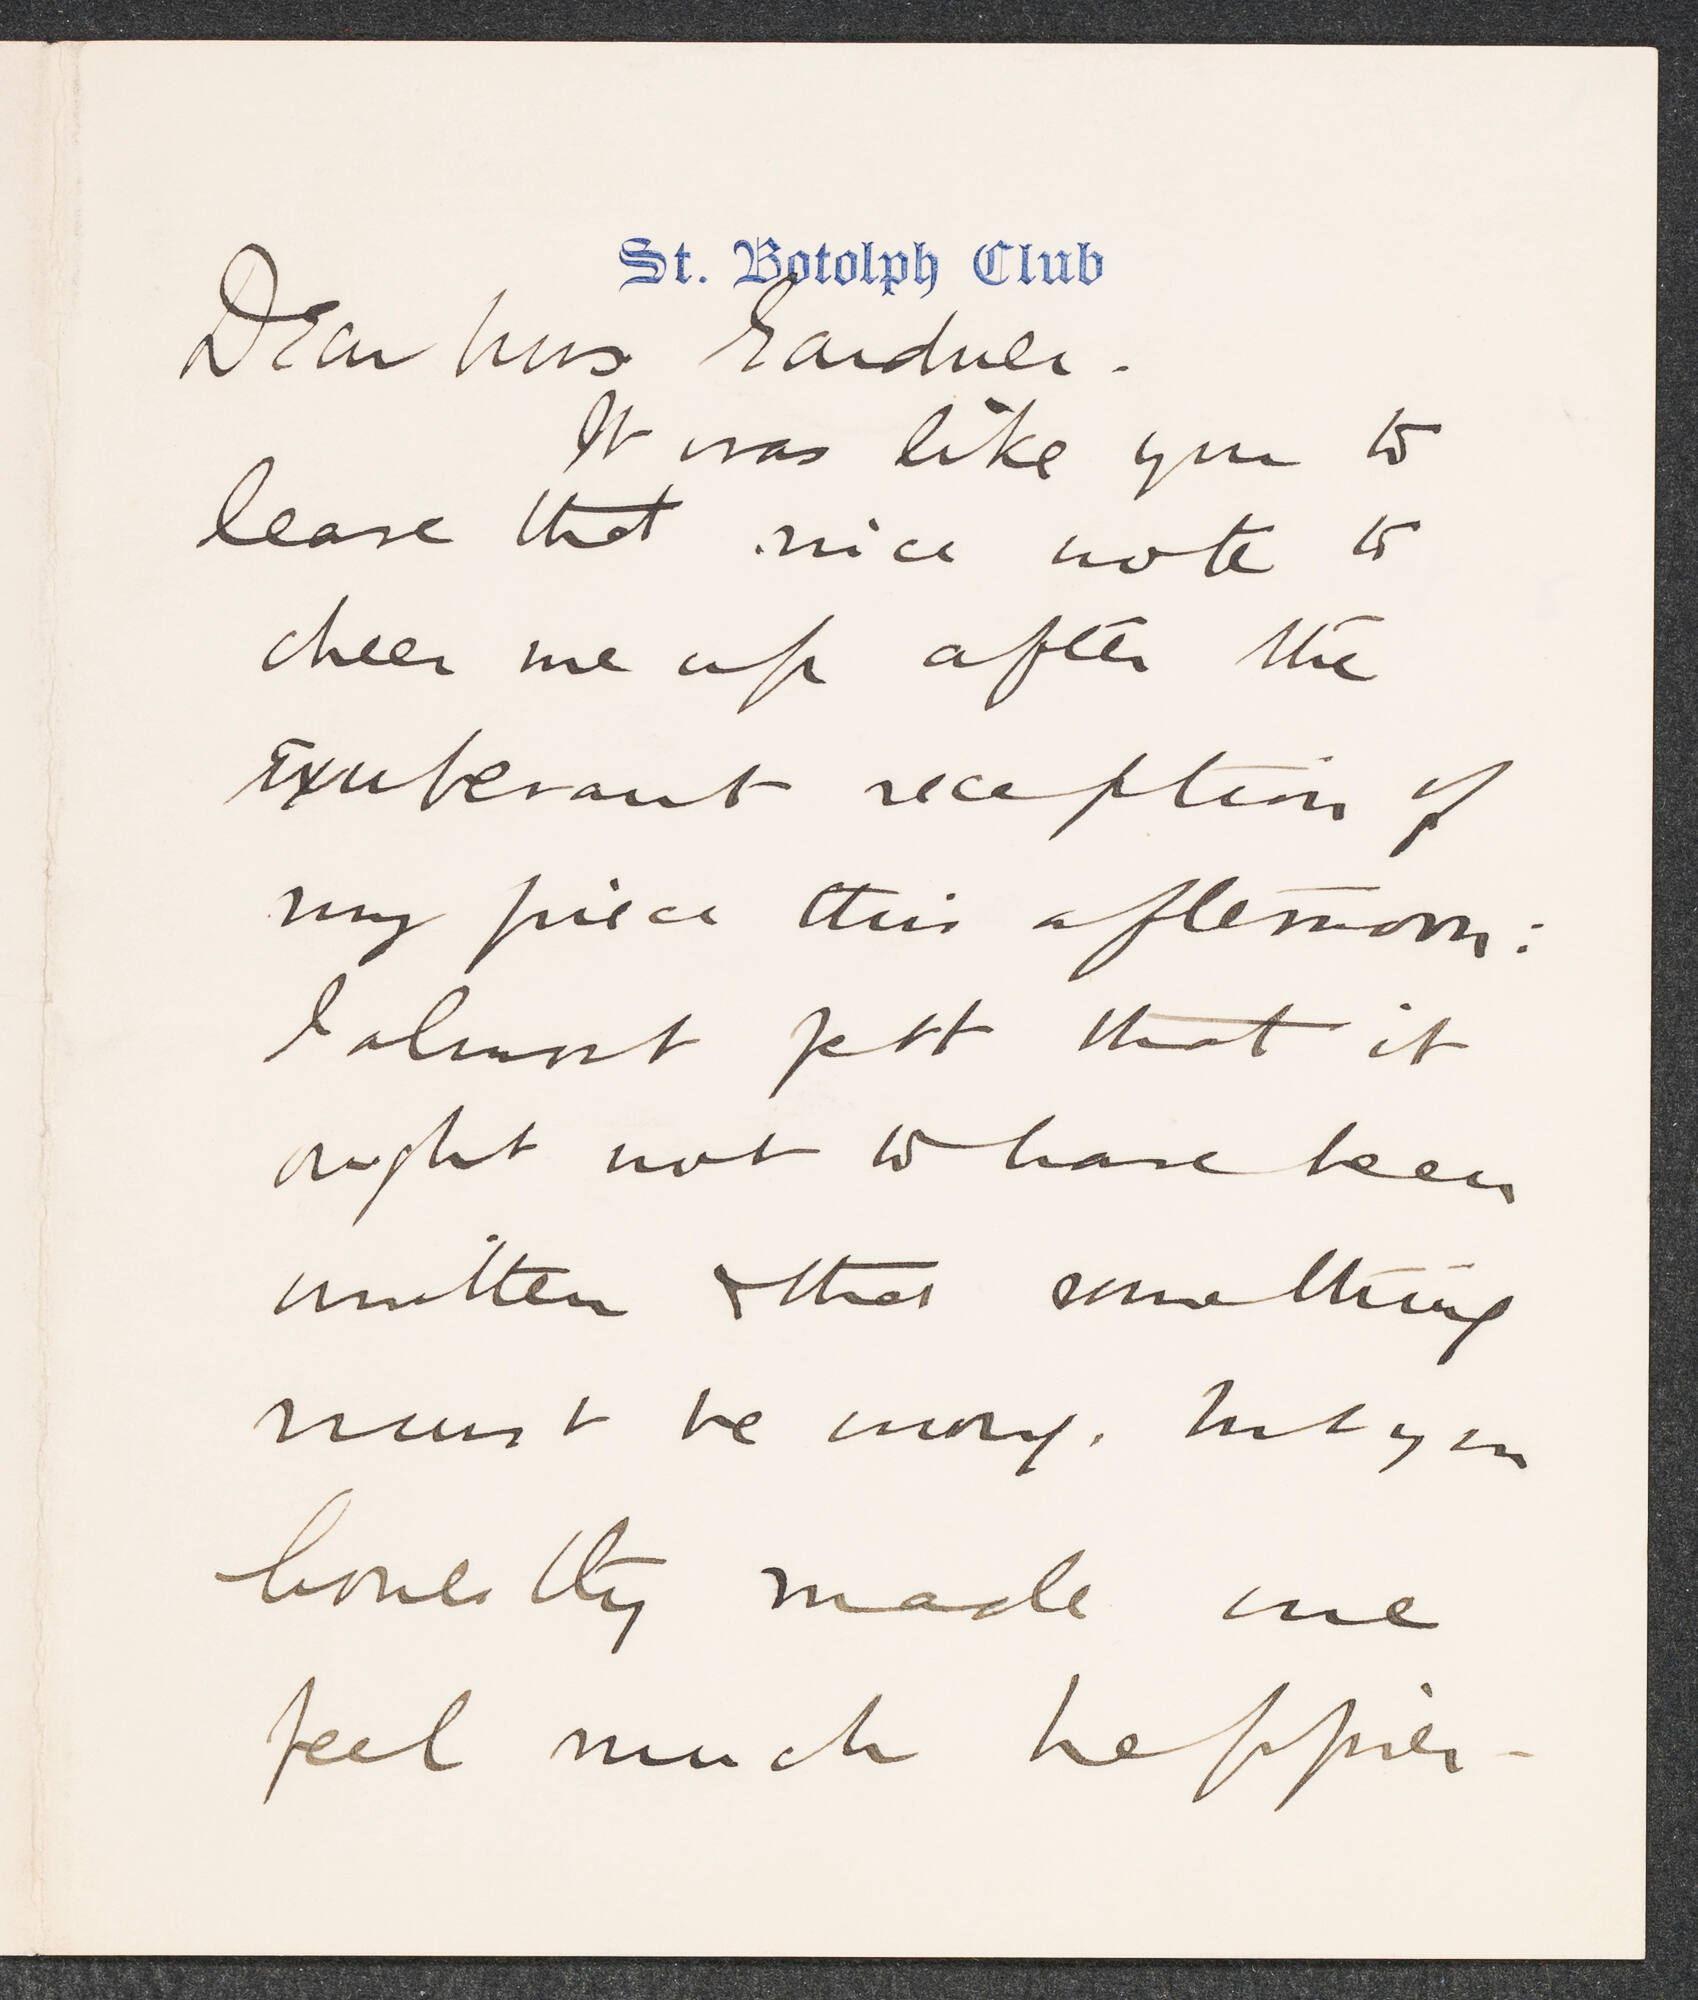 St. Botolph Club
Dear Mrs Gardner.
It was like you to
leave that nice note to
cheer me up after the
exuberant reception of
my piece this afternoon:
I almost felt that it
ought not to have been
written & that something
must be wrong. but you
honestly made me
feel much happier-